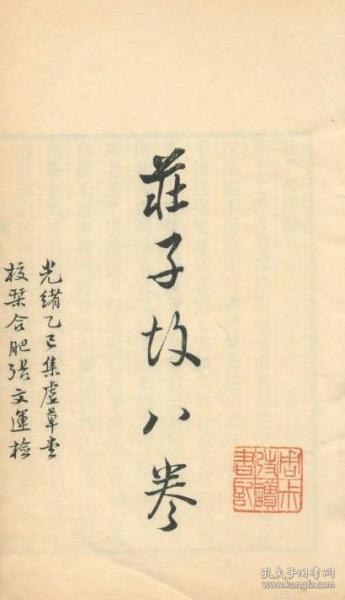 莊子故八卷
光緒乙巳集虛草堂
校栞合肥張文運檢
孔夫子旧书网